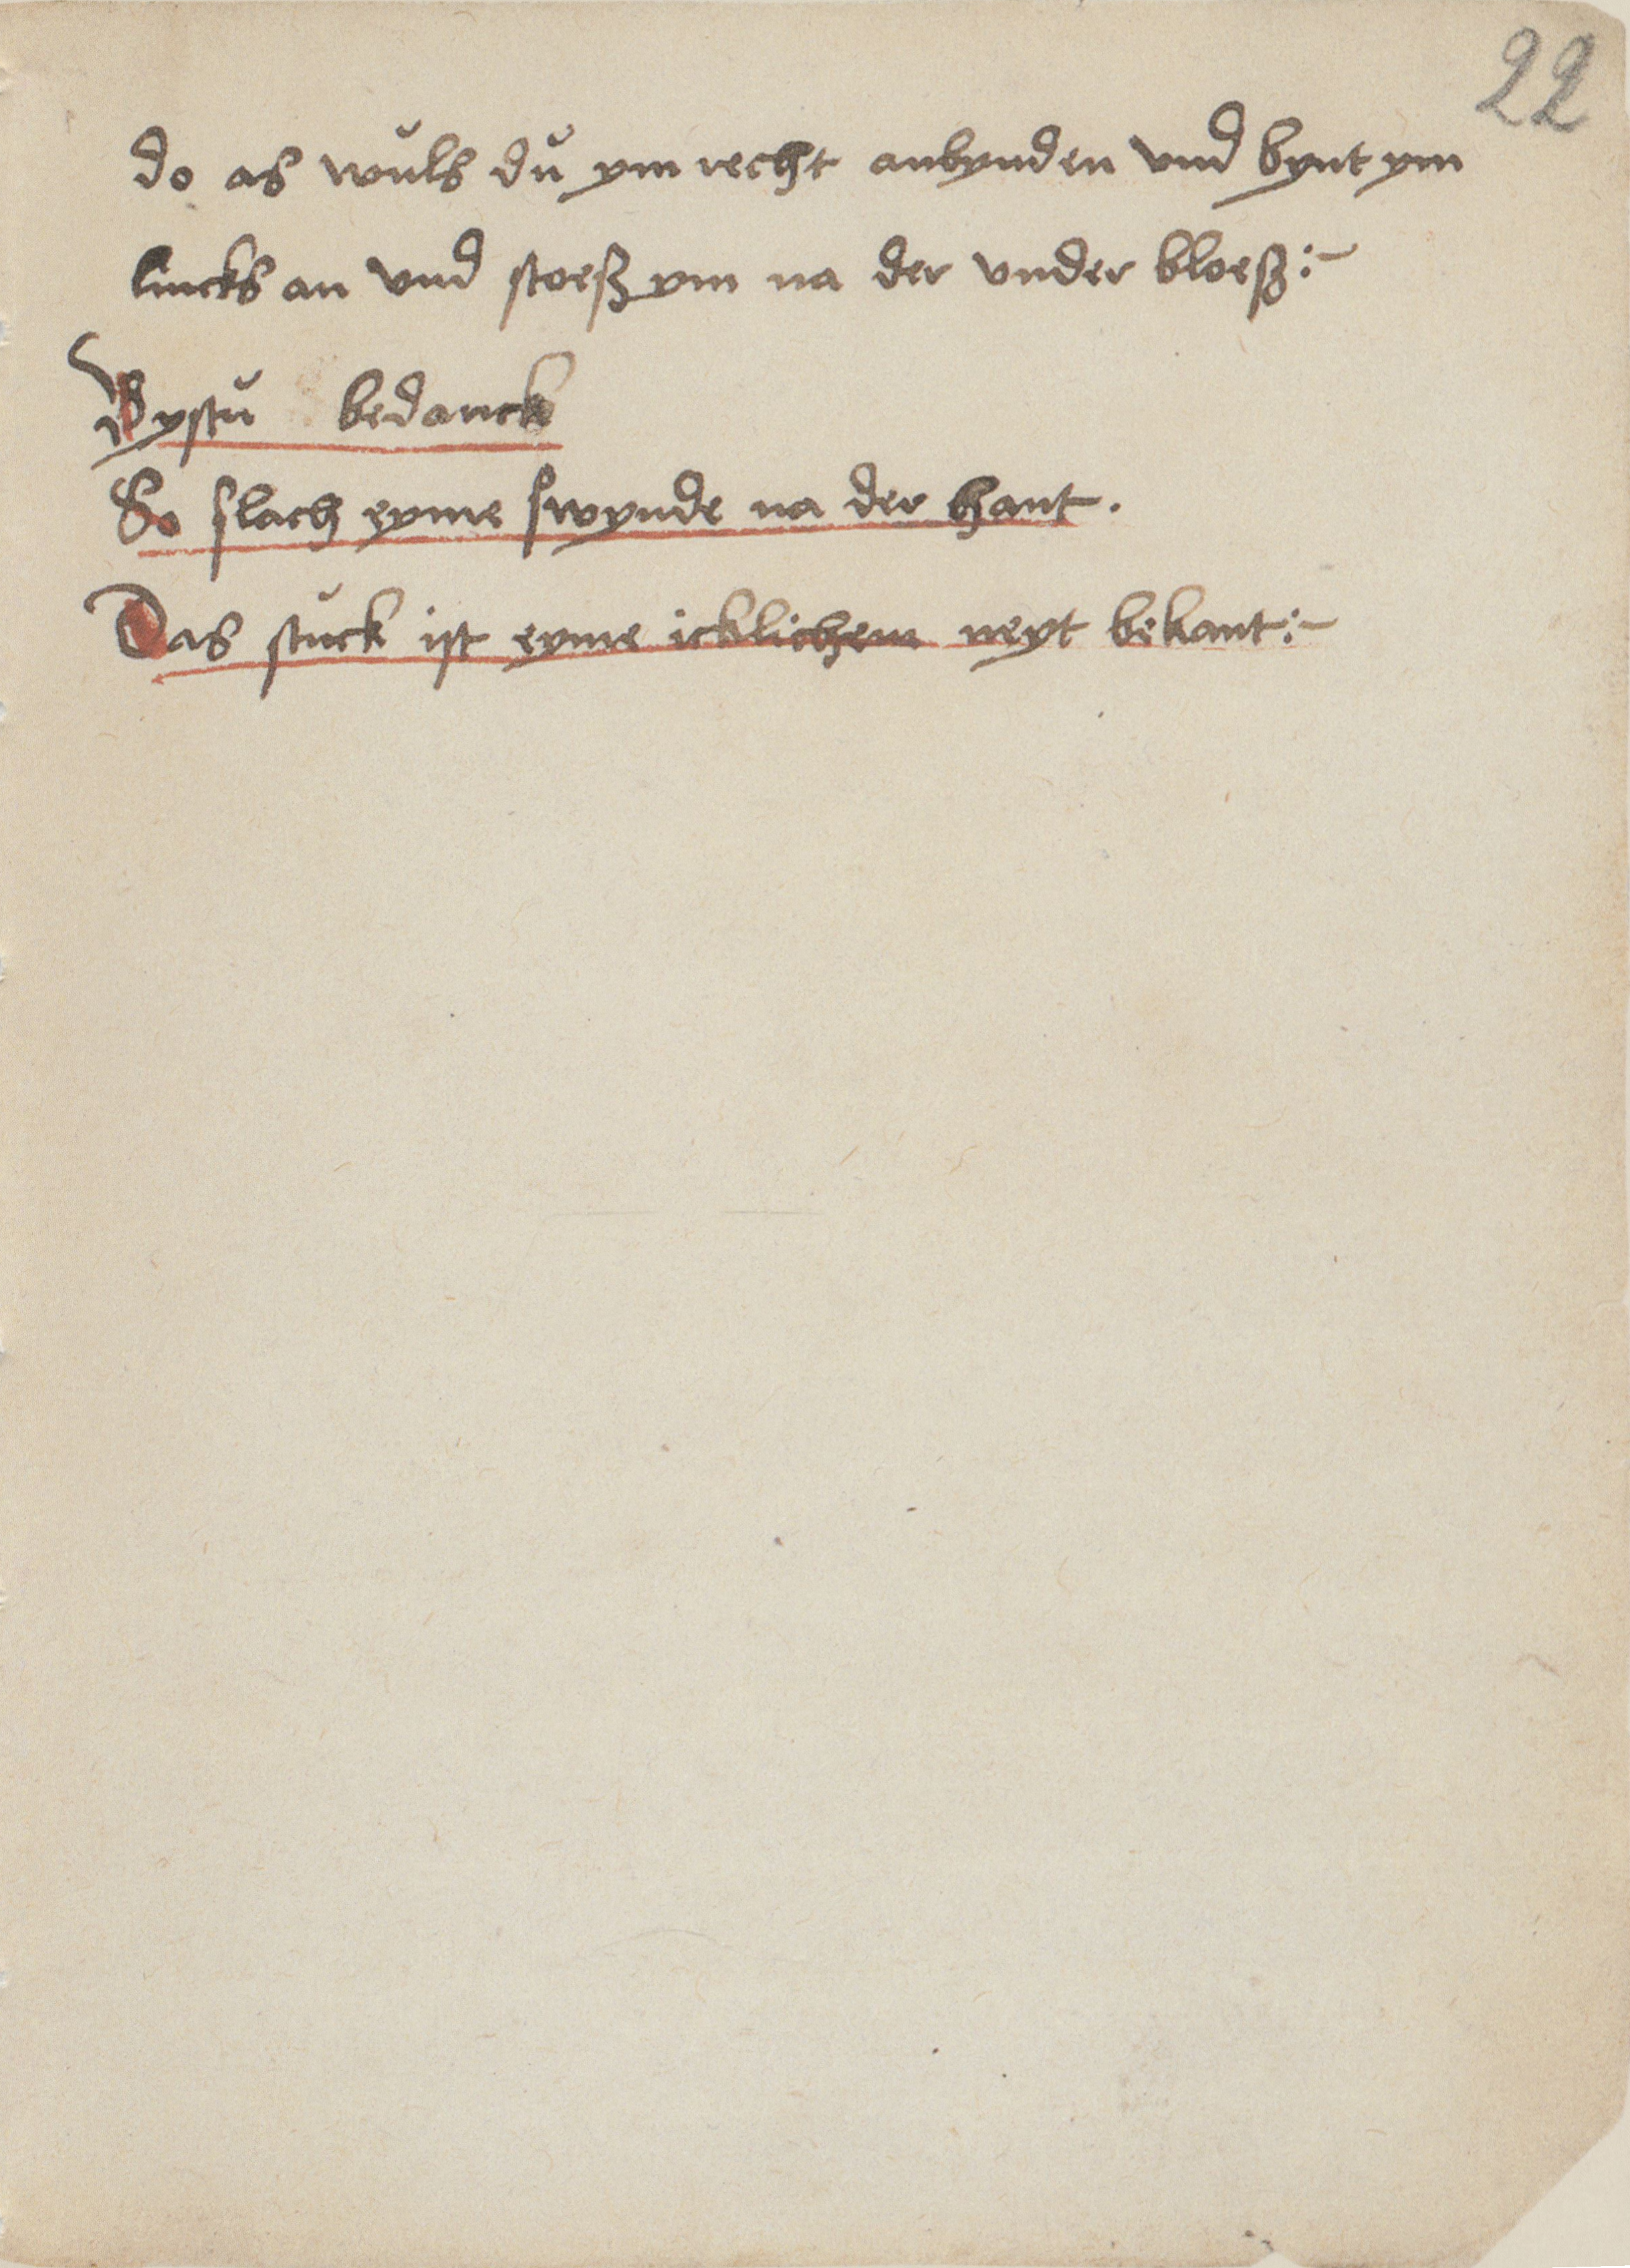 22
do as wuls du ym recht anbynden vnd bynt ym
lincks an vnd stoeß ym na der vnder bloeß :~
Bystu bedanck
So slach eyme swynde na der hant .
Das stuck ist eyme icklichem neyt bekant :~